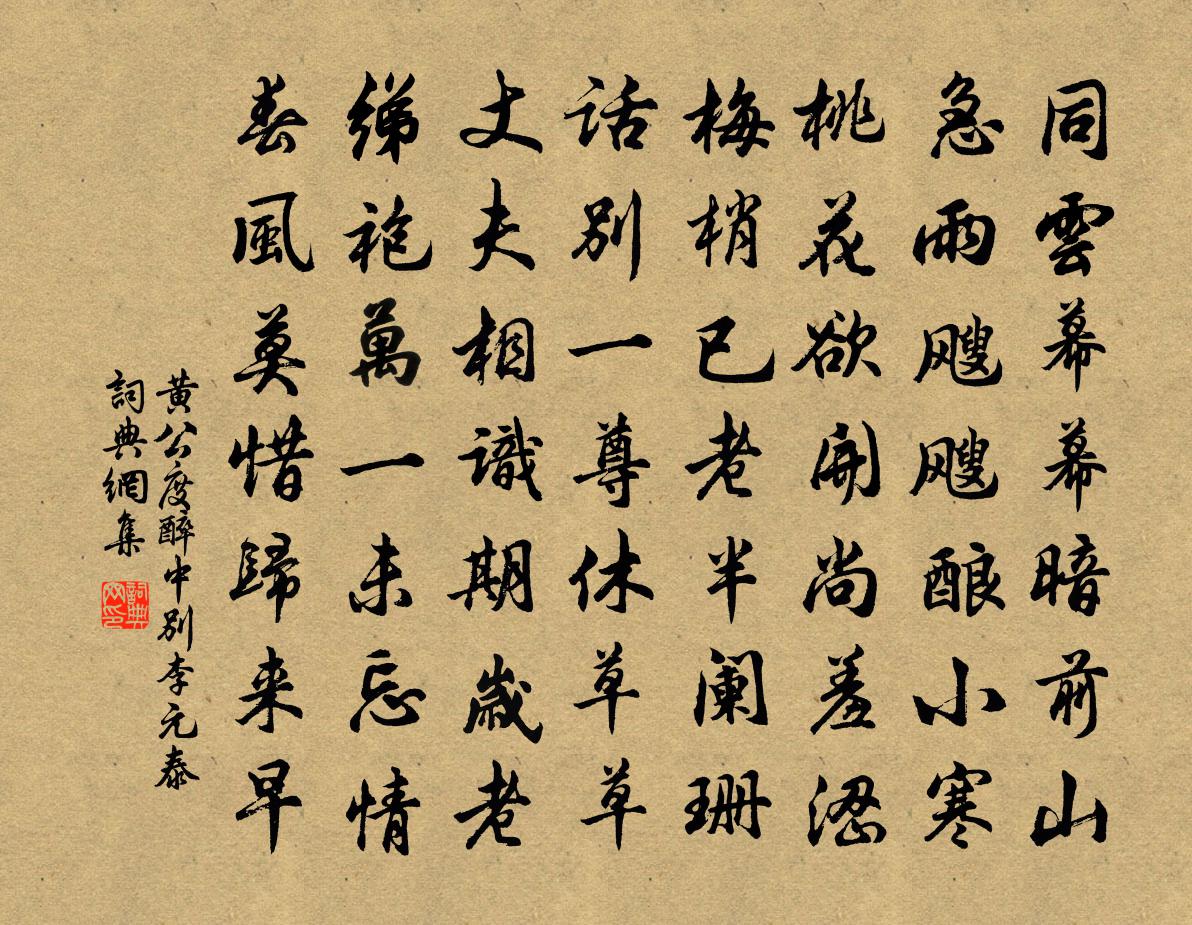 同雲幕幕暗前山
急雨颼颼酿小寒
桃花欲開尚羞澀
梅梢已老半阑珊
话别一尊休草草
丈夫相識期歲老
綈袍萬一未忘情
春風莫惜歸来早
黄公度醉中别李元泰
詞典網集
詞典网印